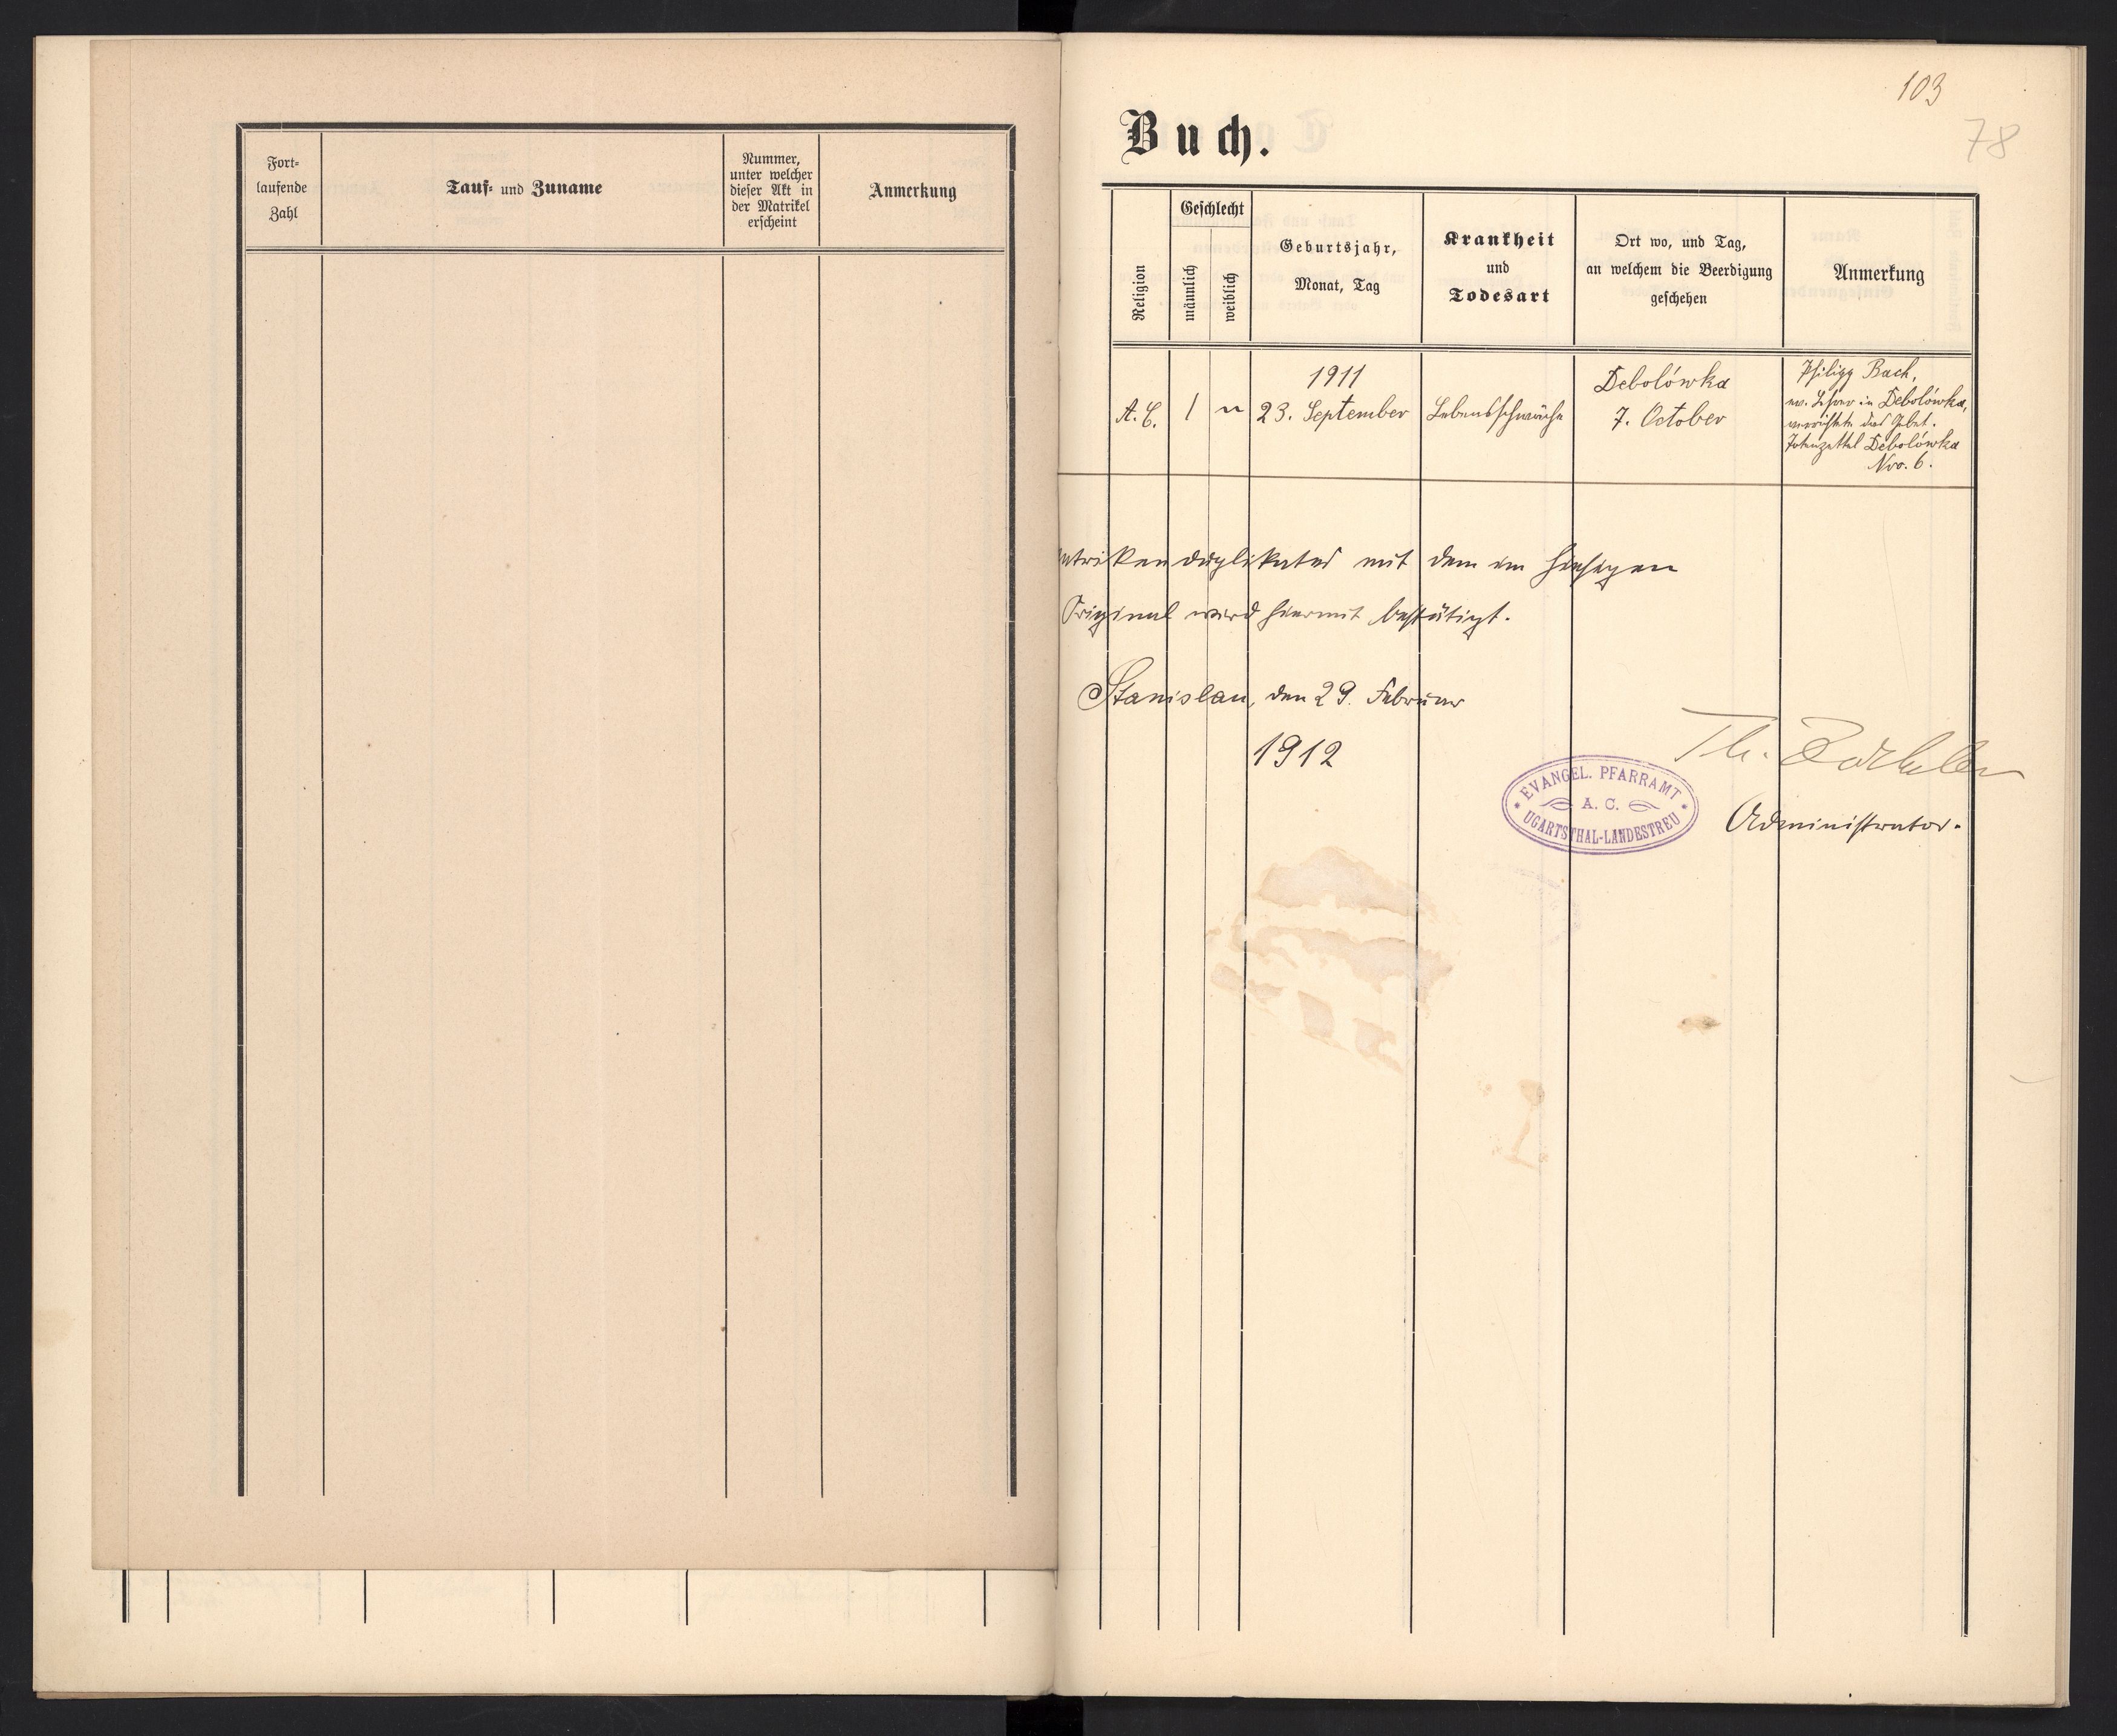 Fort-
laufende
Zahl
Tauf- und Zuname
Nummer,
unter welcher
dieser Akt in
der Matrikel
erscheint
Anmerkung
103
78
Buch.
Religion
Geschlecht
männlich
weiblich
Geburtsjahr,
Monat, Tag
Krankheit
und
Todesart
Ort wo, und Tag,
an welchem die Beerdigung
geschehen
Anmerkung
A. C.
1
"
1911
23. September
Lebensschwäche
Debolówka
7. October
Philipp Bach,
ev. Lehrer in Debolówka,
verrichtete das Gebet.
Totenzettel Debolówka
Nro. 6.
atrikenduplikates mit dem im hiesigen
Original wird hiermit bestätigt.
Stanislau, den 29. Februar
1912
Th.
Administrator.
EVANGEL. PFARRAMT
A. C.
UGARTSTHAL-LANDESTREU